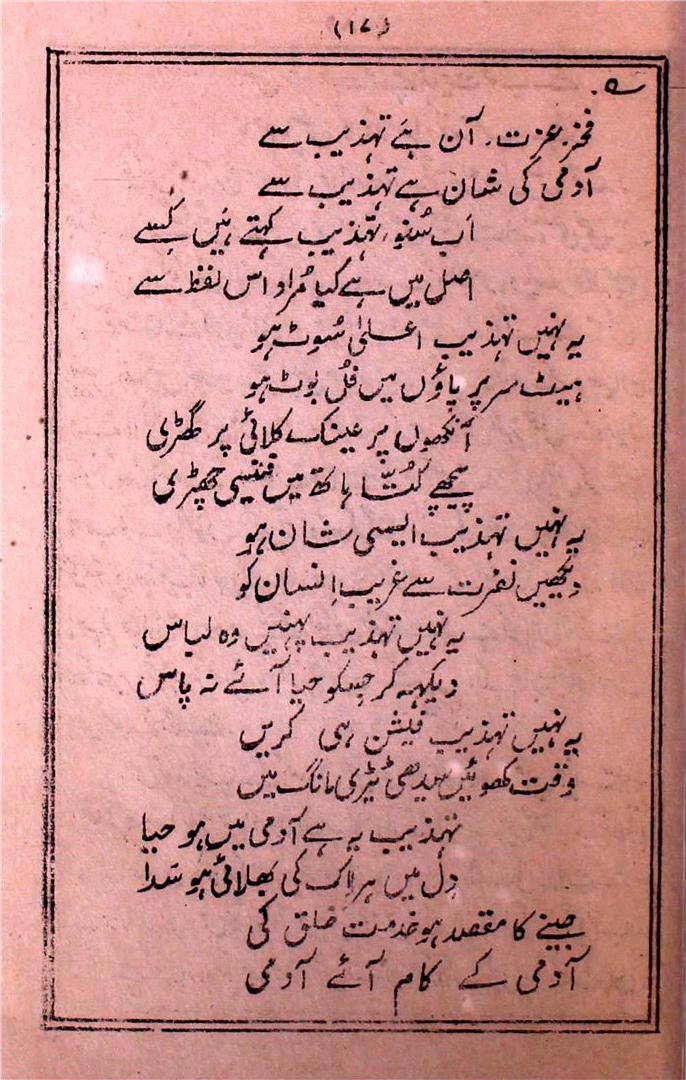 (۱۷)
۹۔
فخر، عزت، آن ہے تہذیب سے
آدمی کی شان ہے تہذیب سے
اَب سُنو، تہذیب کہتے ہیں کِسے
اصل میں ہے کیا مُراد اس لفظ سے
یہ نہیں تہذیب اعلیٰ سُوٹ ہو
ہیٹ سر پر پاؤں میں فُل بُوٹ ہو
آنکھوں پر عینک کلائی پر گھڑی
پیچھے کُتّا ہاتھ میں فینسی چھڑی
یہ نہیں تہذیب ایسی شان ہو
دیکھیں نفرت سے غریب اِنسان کو
یہ نہیں تہذیب پہنیں وہ لباس
دیکھہ کر جسکو حیا آئے نہ پاس
یہ نہیں تہذیب فیشن ہی کریں
وقت کھوئیں سیدھی ٹیڑی مانگ میں
تہذیب یہ ہے آدمی میں ہو حیا
دِل میں ہر اِک کی بھلائی ہو سَدا
جینے کا مقصد ہو خدمت خلق کی
آدمی کے کام آئے آدمی